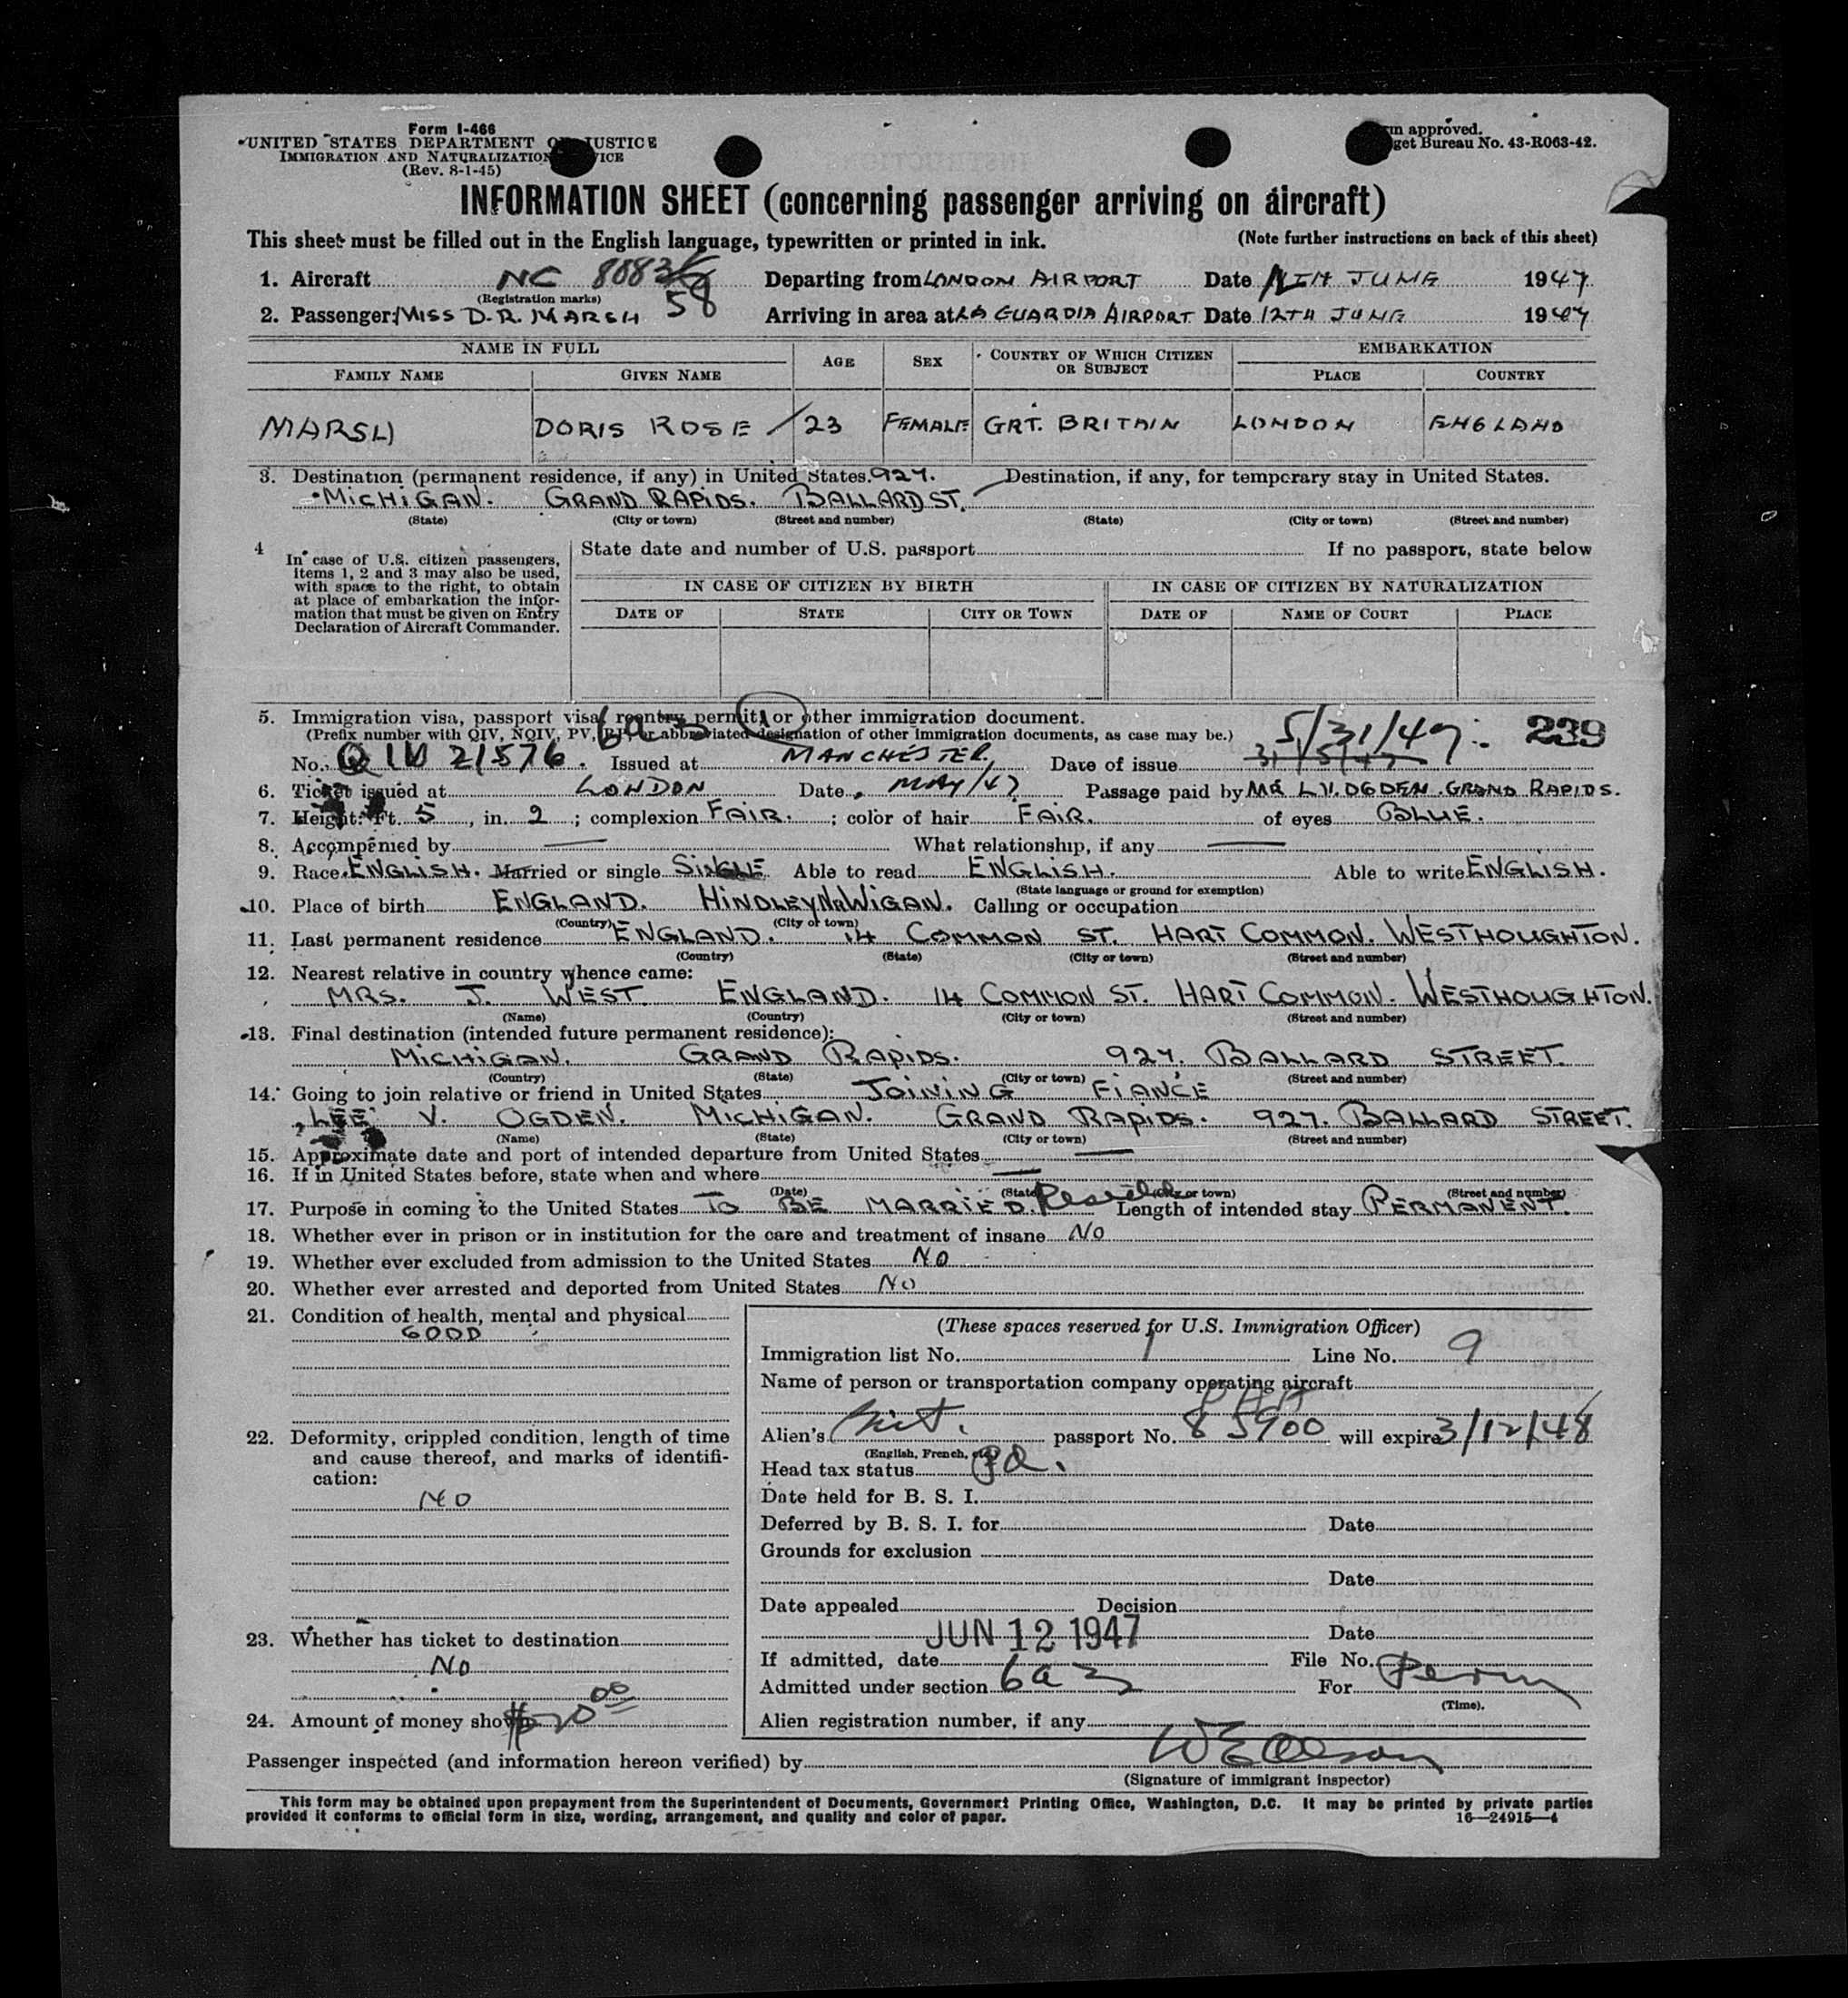 Form I-466
UNITED STATES DEPARTMENT OF JUSTICE
IMMIGRATION AND NATURALIZATION SERVICE
(Rev. 8-1-45)
approved.
get Bureau No. 43-R063-42.
INFORMATION SHEET (concerning passenger arriving on aircraft)
This sheet must be filled out in the English language, typewritten or printed in ink. (Note further instructions on back of this sheet)
1. Aircraft NC 8883 Departing from LONDON AIRPORT Date JUNE 1947
(Registration marks) 58
2. Passenger: MISS D.R. MARSH Arriving in area at LA GUARDIA AIRPORT Date 12TH JUNE 1947
NAME IN FULL AGE SEX COUNTRY OF WHICH CITIZEN OR SUBJECT EMBARKATION
FAMILY NAME GIVEN NAME PLACE COUNTRY
MARSH DORIS ROSE 23 FEMALE GRT. BRITAIN LONDON ENGLAND
3. Destination (permanent residence, if any) in United States. 927. Destination, if any, for temporary stay in United States.
MICHIGAN. GRAND RAPIDS. BALLARD ST.
(State) (City or town) (Street and number) (State) (City or town) (Street and number)
4 In case of U.S. citizen passengers, items 1, 2 and 3 may also be used, with space to the right, to obtain at place of embarkation the information that must be given on Entry Declaration of Aircraft Commander.
State date and number of U.S. passport If no passport, state below
IN CASE OF CITIZEN BY BIRTH IN CASE OF CITIZEN BY NATURALIZATION
DATE OF STATE CITY OR TOWN DATE OF NAME OF COURT PLACE
5. Immigration visa, passport visa, reentry permit, or other immigration document.
(Prefix number with QIV, NQIV, PV, RP, or abbreviated designation of other immigration documents, as case may be.) 6a3 5/31/47 239
No. QIV 21576. Issued at MANCHESTER, Date of issue 31/5/47
6. Ticket issued at LONDON Date MAY/47 Passage paid by MR L.V. OGDEN. GRAND RAPIDS.
7. Height: Ft. 5, in. 2; complexion FAIR.; color of hair FAIR. of eyes BLUE.
8. Accompanied by — What relationship, if any —
9. Race ENGLISH. Married or single SINGLE Able to read ENGLISH. Able to write ENGLISH.
(State language or ground for exemption)
10. Place of birth ENGLAND. HINDLEY NR WIGAN. Calling or occupation
(Country) (City or town)
11. Last permanent residence ENGLAND. 14 COMMON ST. HART COMMON. WESTHOUGHTON.
(Country) (State) (City or town) (Street and number)
12. Nearest relative in country whence came:
MRS. J. WEST. ENGLAND. 14 COMMON ST. HART COMMON. WESTHOUGHTON.
(Name) (Country) (City or town) (Street and number)
13. Final destination (intended future permanent residence):
MICHIGAN. GRAND RAPIDS. 927. BALLARD STREET.
(Country) (State) (City or town) (Street and number)
14. Going to join relative or friend in United States JOINING FIANCE
LEE V. OGDEN. MICHIGAN. GRAND RAPIDS. 927. BALLARD STREET.
(Name) (State) (City or town) (Street and number)
15. Approximate date and port of intended departure from United States —
16. If in United States before, state when and where —
(Date) (State) (City or town) (Street and number)
17. Purpose in coming to the United States TO BE MARRIED. Length of intended stay PERMANENT.
18. Whether ever in prison or in institution for the care and treatment of insane NO
19. Whether ever excluded from admission to the United States NO
20. Whether ever arrested and deported from United States NO
21. Condition of health, mental and physical
GOOD
22. Deformity, crippled condition, length of time and cause thereof, and marks of identification:
NO
23. Whether has ticket to destination
NO
24. Amount of money shown $20.00
(These spaces reserved for U.S. Immigration Officer)
Immigration list No. 1 Line No. 9
Name of person or transportation company operating aircraft
PAA
Alien's Brit. passport No. 85900 will expire 3/12/48
(English, French, etc.)
Head tax status Pd.
Date held for B. S. I.
Deferred by B. S. I. for Date
Grounds for exclusion
Date
Date appealed Decision
Date
JUN 12 1947
If admitted, date File No.
Admitted under section 6a3 For Perm
(Time).
Alien registration number, if any
Passenger inspected (and information hereon verified) by WE Olson
(Signature of immigrant inspector)
This form may be obtained upon prepayment from the Superintendent of Documents, Government Printing Office, Washington, D.C. It may be printed by private parties
provided it conforms to official form in size, wording, arrangement, and quality and color of paper. 16—24915—4